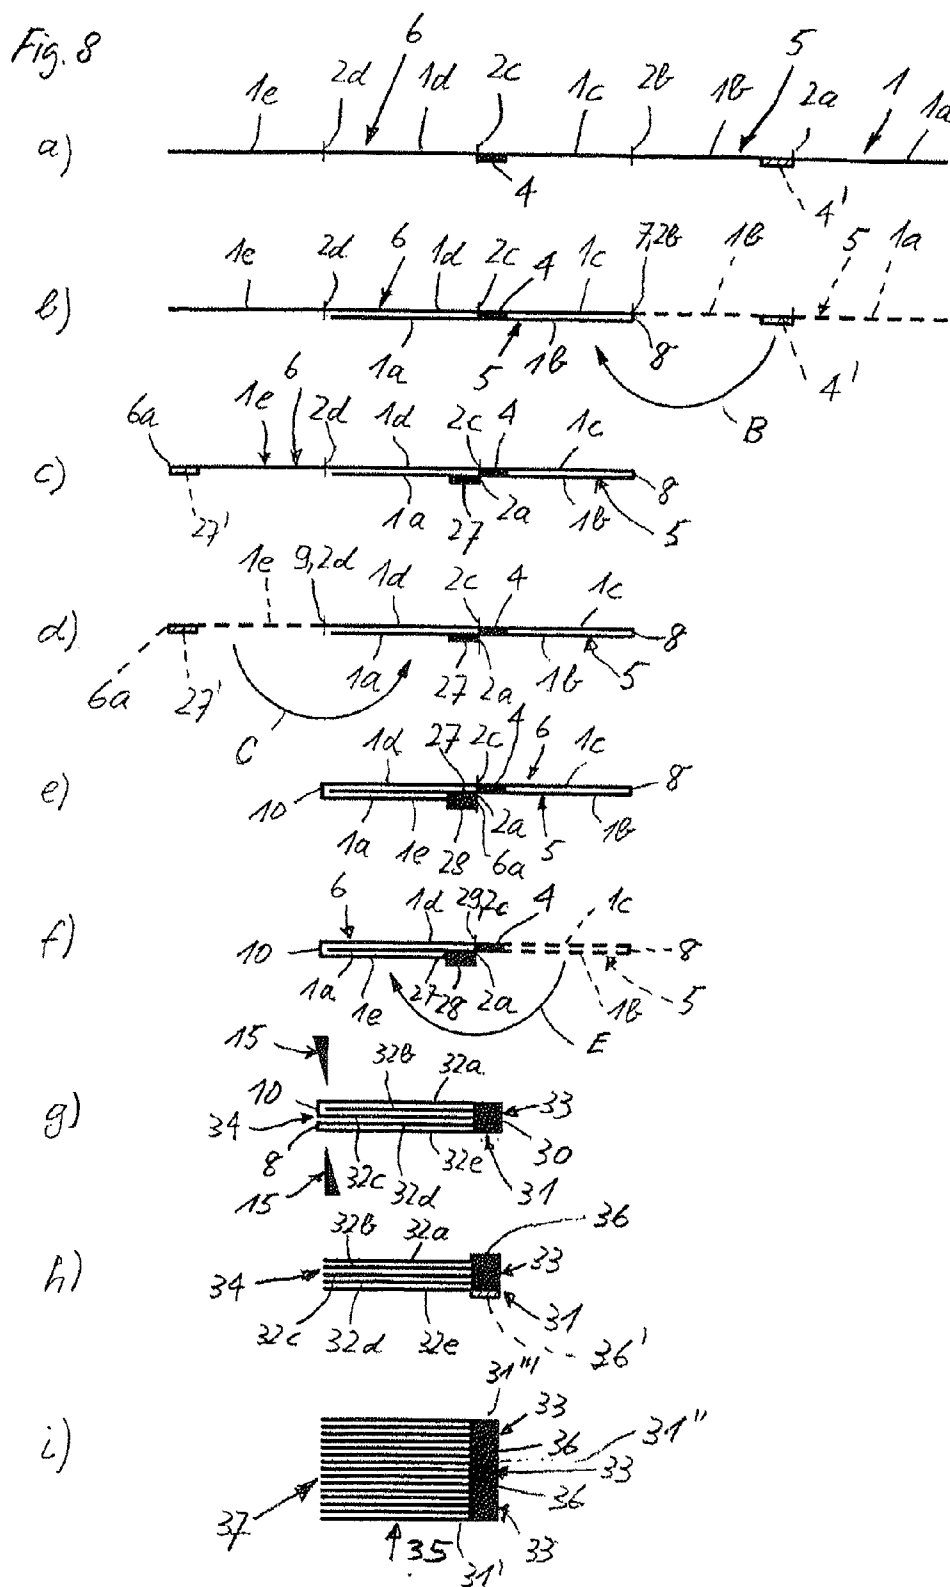 Fig. 8
6 5
1e 2d 1d 2c 1c 2b 1b 2a 1 1a
a)
4 4'
1e 2d 6 1d 2c 4 1c 7,2b 1b 5 1a
b)
1a 5 1b 8 4'
B
6a 1e 6 2d 1d 2c 4 1c
c) 8
27' 1a 27 2a 1b 5
1e 9,2d 1d 2c 4 1c
d) 8
6a 27' 1a 27 2a 1b 5
C
1d 27 2c 4 6 1c
e) 10 8
1a 1e 28 2a 6a 5 1b
6 1d 29,2c 4 1c
f) 10 8
1a 1e 27 28 2a 1b 5
E
15 32b 32a
g) 10 33
34 30
8
15 32c 32d 32e 31
32b 32a 36
h) 34 33
31
32c 32d 32e 36'
31'''
33
i) 36 31''
33
36
37 35 31' 33